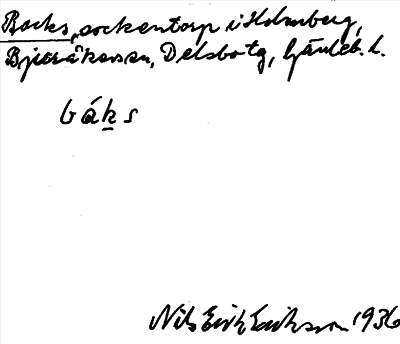 Backs, sockentorp i Holmberg,
Bjuråkers sn, Delsbo tg, Gävleb. l.
báks
Nils Erik Eriksson 1936